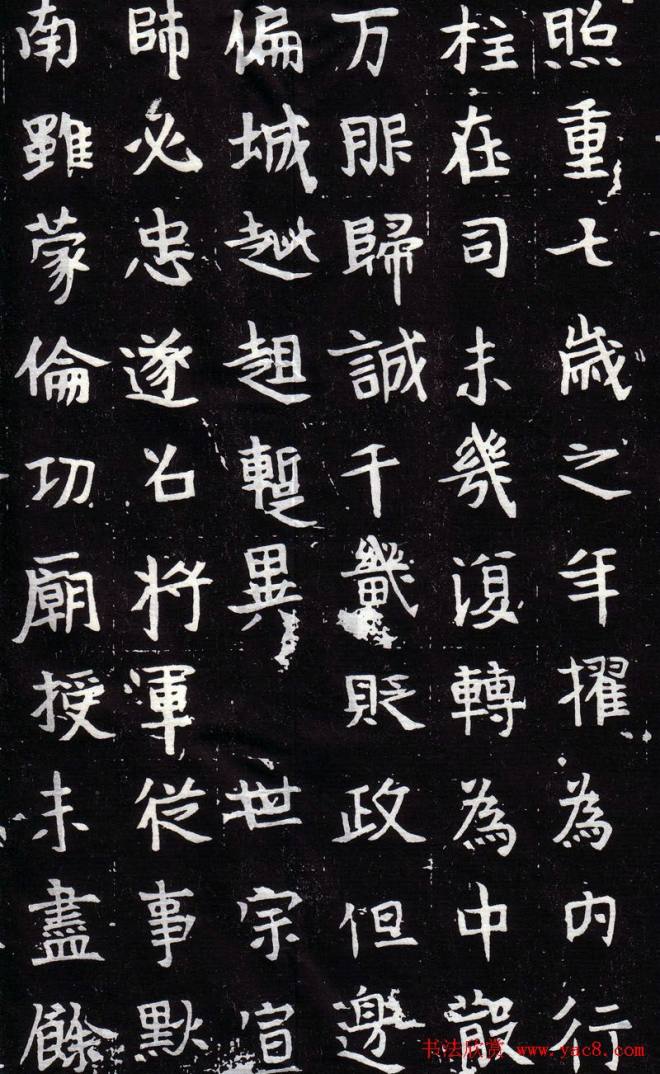 照重七歲之年擢為内行
柱在司未幾復轉為中散
万服歸誠千畿貶政但邊
偏城越趄暫異世宗宣
師必忠遂召將軍從事默
南雖蒙倫功廟授未盡餘
书法欣赏 www.yac8.com